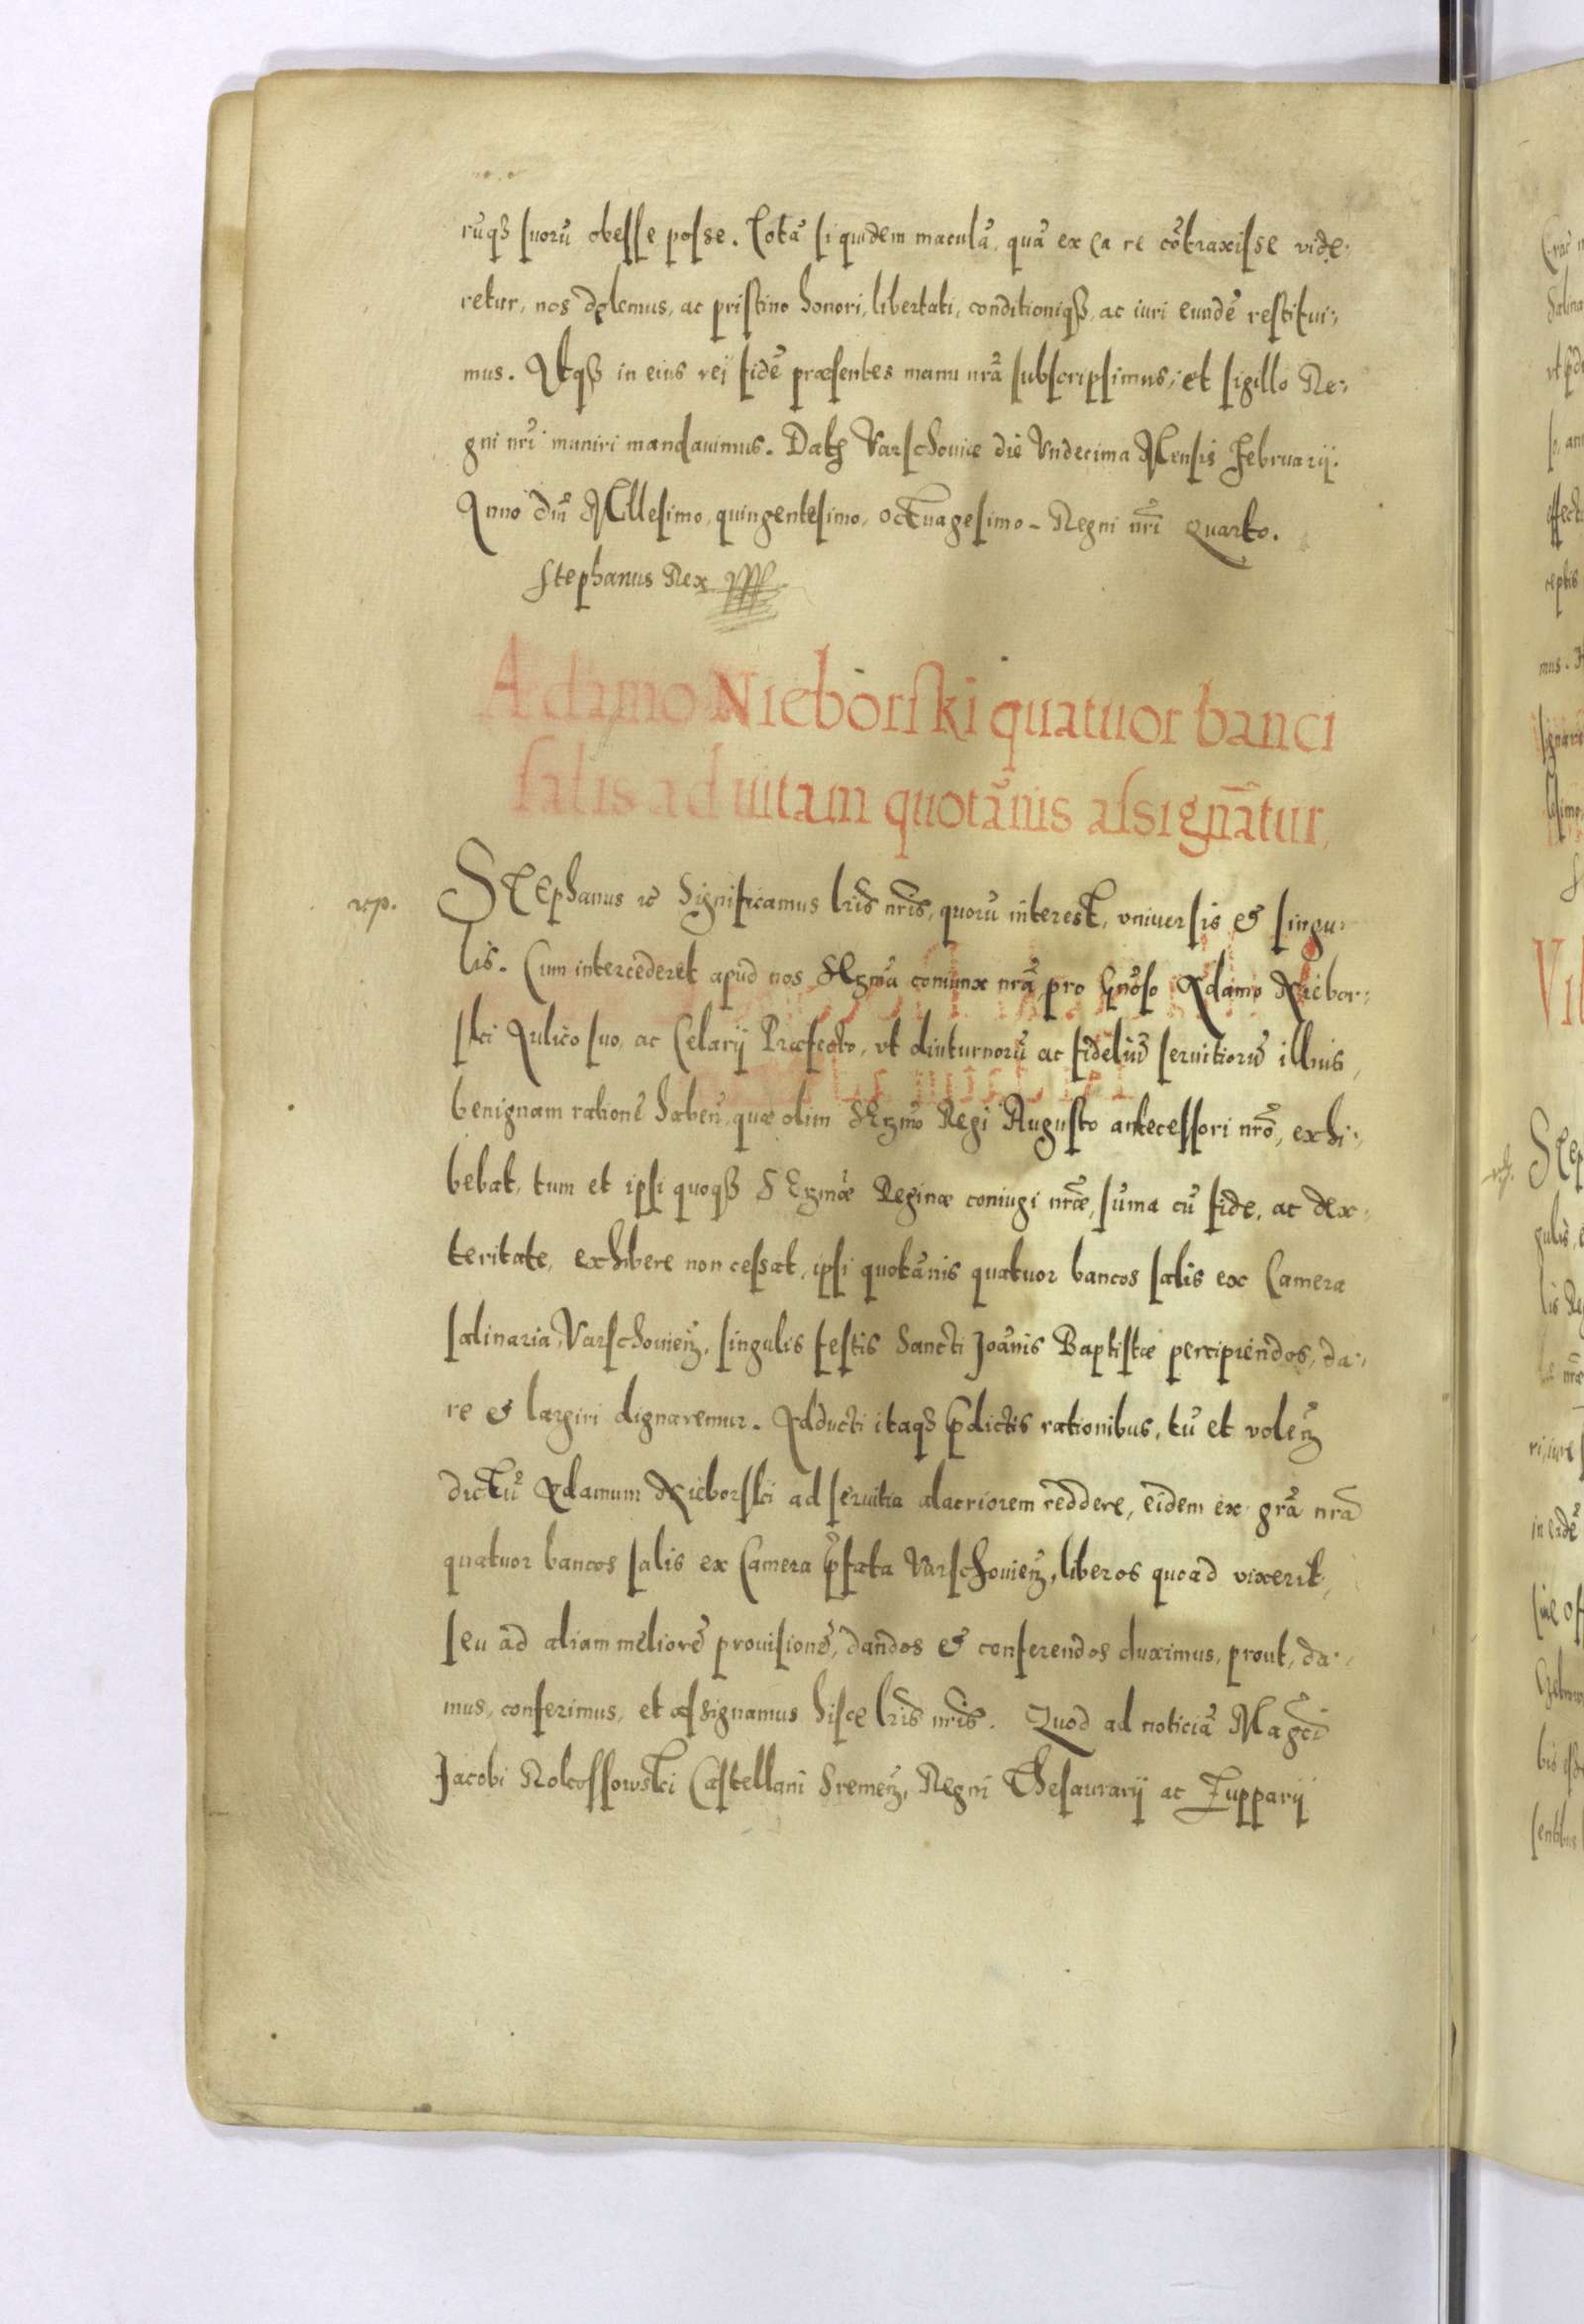 rũqꝫ suorũ obesse posse. Totã siquidem maculã, quã ex ea re cõtraxisse vide:
retur, nos dolemus, ac pristino honori, libertati, conditioniqꝫ, ac iuri eundẽ restitui:
mus. Atqꝫ in eius rei fidẽ præsentes manu nrã subscripsimus, et sigillo Re:
gni nrĩ muniri mandauimus. Datꝫ Varschouiæ die Vndecima Mensis Februarij.
Anno dnĩ Millesimo, quingentesimo, octuagesimo. Regni nrĩ Quarto.
Stephanus Rex
Adamo Nieborski quatuor banci
salis ad uitam quotãnis assignãtur,
Stephanus ꝛc̃ Significamus lrĩs nrĩs, quorũ interest, vniuersis & singu:
lis. Cum intercederet apud nos SErmã coniunx nrã, pro Gnõso Adamo Niebor:
ski Aulico suo, ac Celarij Præfecto, vt diuturnorũ ac fideliũ seruitiorũ illius,
benignam rationẽ haben, quæ olim SErmõ Regi Augusto antecessori nrõ, exhi:
bebat, tum et ipsi quoqꝫ SErmæ̃ Reginæ coniugi nræ̃, sũma cũ fide, ac dex:
teritate, exhibere non cessat, ipsi quotãnis quatuor bancos salis ex Camera
salinaria Varschouienꝫ, singulis festis Sancti Joãnis Baptistæ percipiendos, da:
re & largiri dignaremur. Adducti itaqꝫ p̃dictis rationibus, tũ et volenꝫ
dictũ Adamum Nieborski ad seruitia alacriorem reddere, eidem ex grã nrã
quatuor bancos salis ex Camera p̃fata Varschouienꝫ, liberos quoad vixerit,
seu ad aliam meliorẽ prouisionẽ, dandos & conferendos duximus, prout, da:
mus, conferimus, et assignamus hisce lrĩs nrĩs. Quod ad noticiã Magcĩ
Jacobi Rokossowski Castellani Sremenꝫ, Regni Thesaurarij ac Zupparij